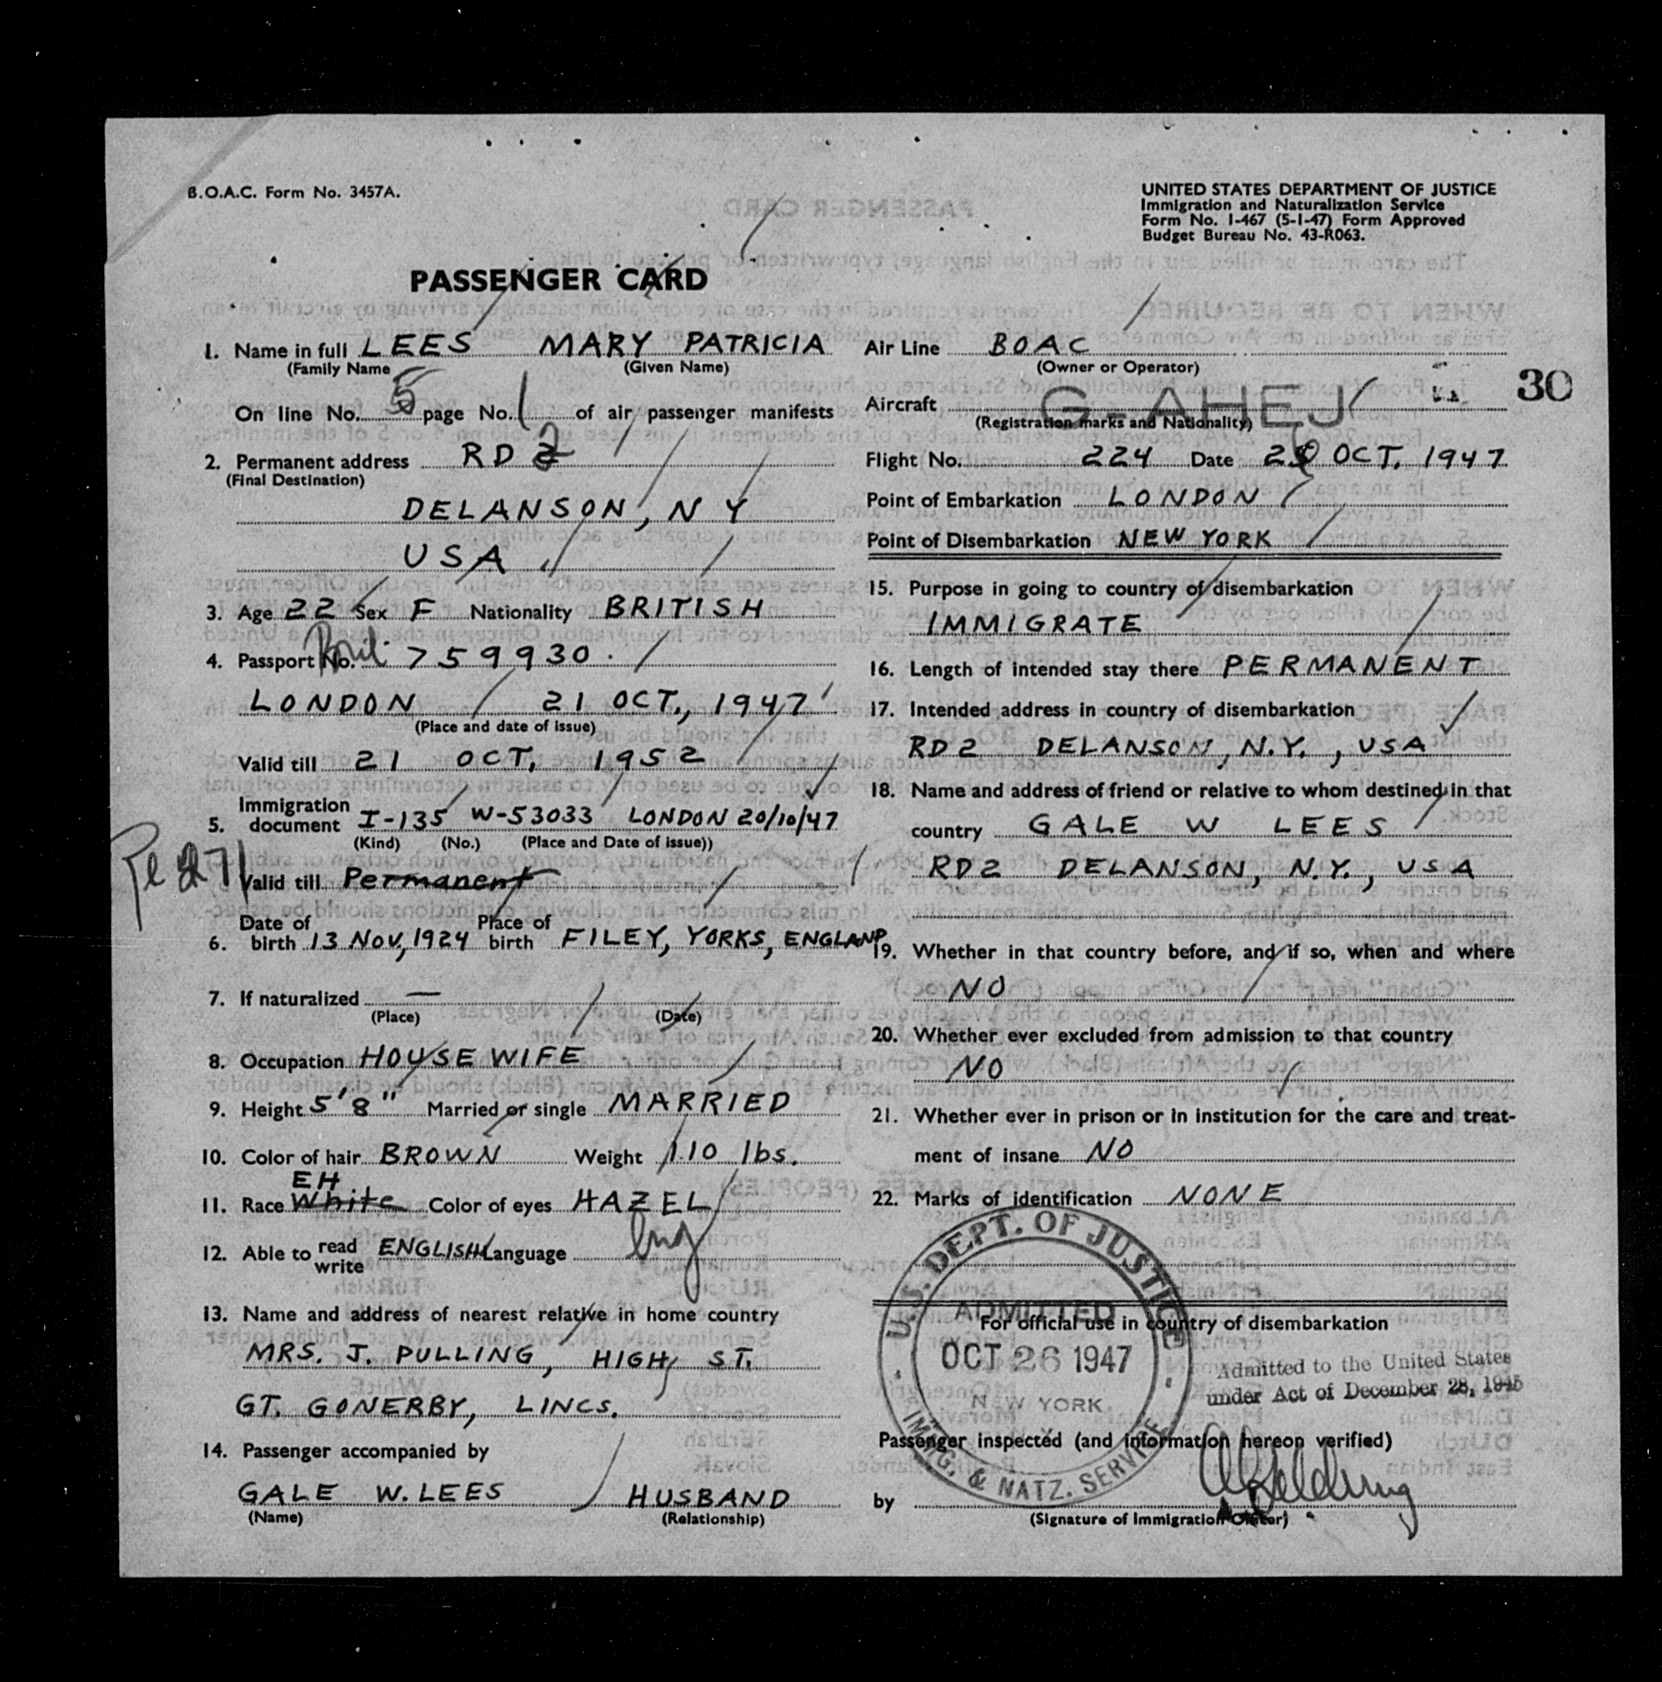 B.O.A.C. Form No. 3457A.
UNITED STATES DEPARTMENT OF JUSTICE
Immigration and Naturalization Service
Form No. I-467 (5-1-47) Form Approved
Budget Bureau No. 43-R063.
PASSENGER CARD
1. Name in full LEES MARY PATRICIA
(Family Name (Given Name)
On line No. 5 page No. 1 of air passenger manifests
2. Permanent address RD 2
(Final Destination)
DELANSON, N Y
USA
3. Age 22 Sex F Nationality BRITISH
4. Passport No. 759930.
LONDON 21 OCT., 1947
(Place and date of issue)
Valid till 21 OCT, 1952
5. Immigration document I-135 W-53033 LONDON 20/10/47
(Kind) (No.) (Place and Date of issue))
Valid till Permanent
6. Date of birth 13 NOV, 1924 Place of birth FILEY, YORKS, ENGLAND
7. If naturalized —
(Place) (Date)
8. Occupation HOUSE WIFE
9. Height 5'8" Married or single MARRIED
10. Color of hair BROWN Weight 110 lbs.
EH
11. Race White Color of eyes HAZEL
12. Able to read write ENGLISH Language Eng
13. Name and address of nearest relative in home country
MRS. J. PULLING, HIGH ST.
GT. GONERBY, LINCS.
14. Passenger accompanied by
GALE W. LEES HUSBAND
(Name) (Relationship)
Air Line BOAC
(Owner or Operator)
30
Aircraft G-AHEJ
(Registration marks and Nationality)
Flight No. 224 Date 26 OCT. 1947
Point of Embarkation LONDON
Point of Disembarkation NEW YORK
15. Purpose in going to country of disembarkation
IMMIGRATE
16. Length of intended stay there PERMANENT
17. Intended address in country of disembarkation
RD2 DELANSON, N.Y., USA
18. Name and address of friend or relative to whom destined in that
country GALE W LEES
RD2 DELANSON, N.Y., USA
19. Whether in that country before, and if so, when and where
NO
20. Whether ever excluded from admission to that country
NO
21. Whether ever in prison or in institution for the care and treat-
ment of insane NO
22. Marks of identification NONE
U.S. DEPT. OF JUSTICE
ADMITTED
For official use in country of disembarkation
OCT 26 1947
NEW YORK
IMMIG. & NATZ. SERVICE
Admitted to the United States
under Act of December 28, 1945
Passenger inspected (and information hereon verified)
by
(Signature of Immigration Officer)